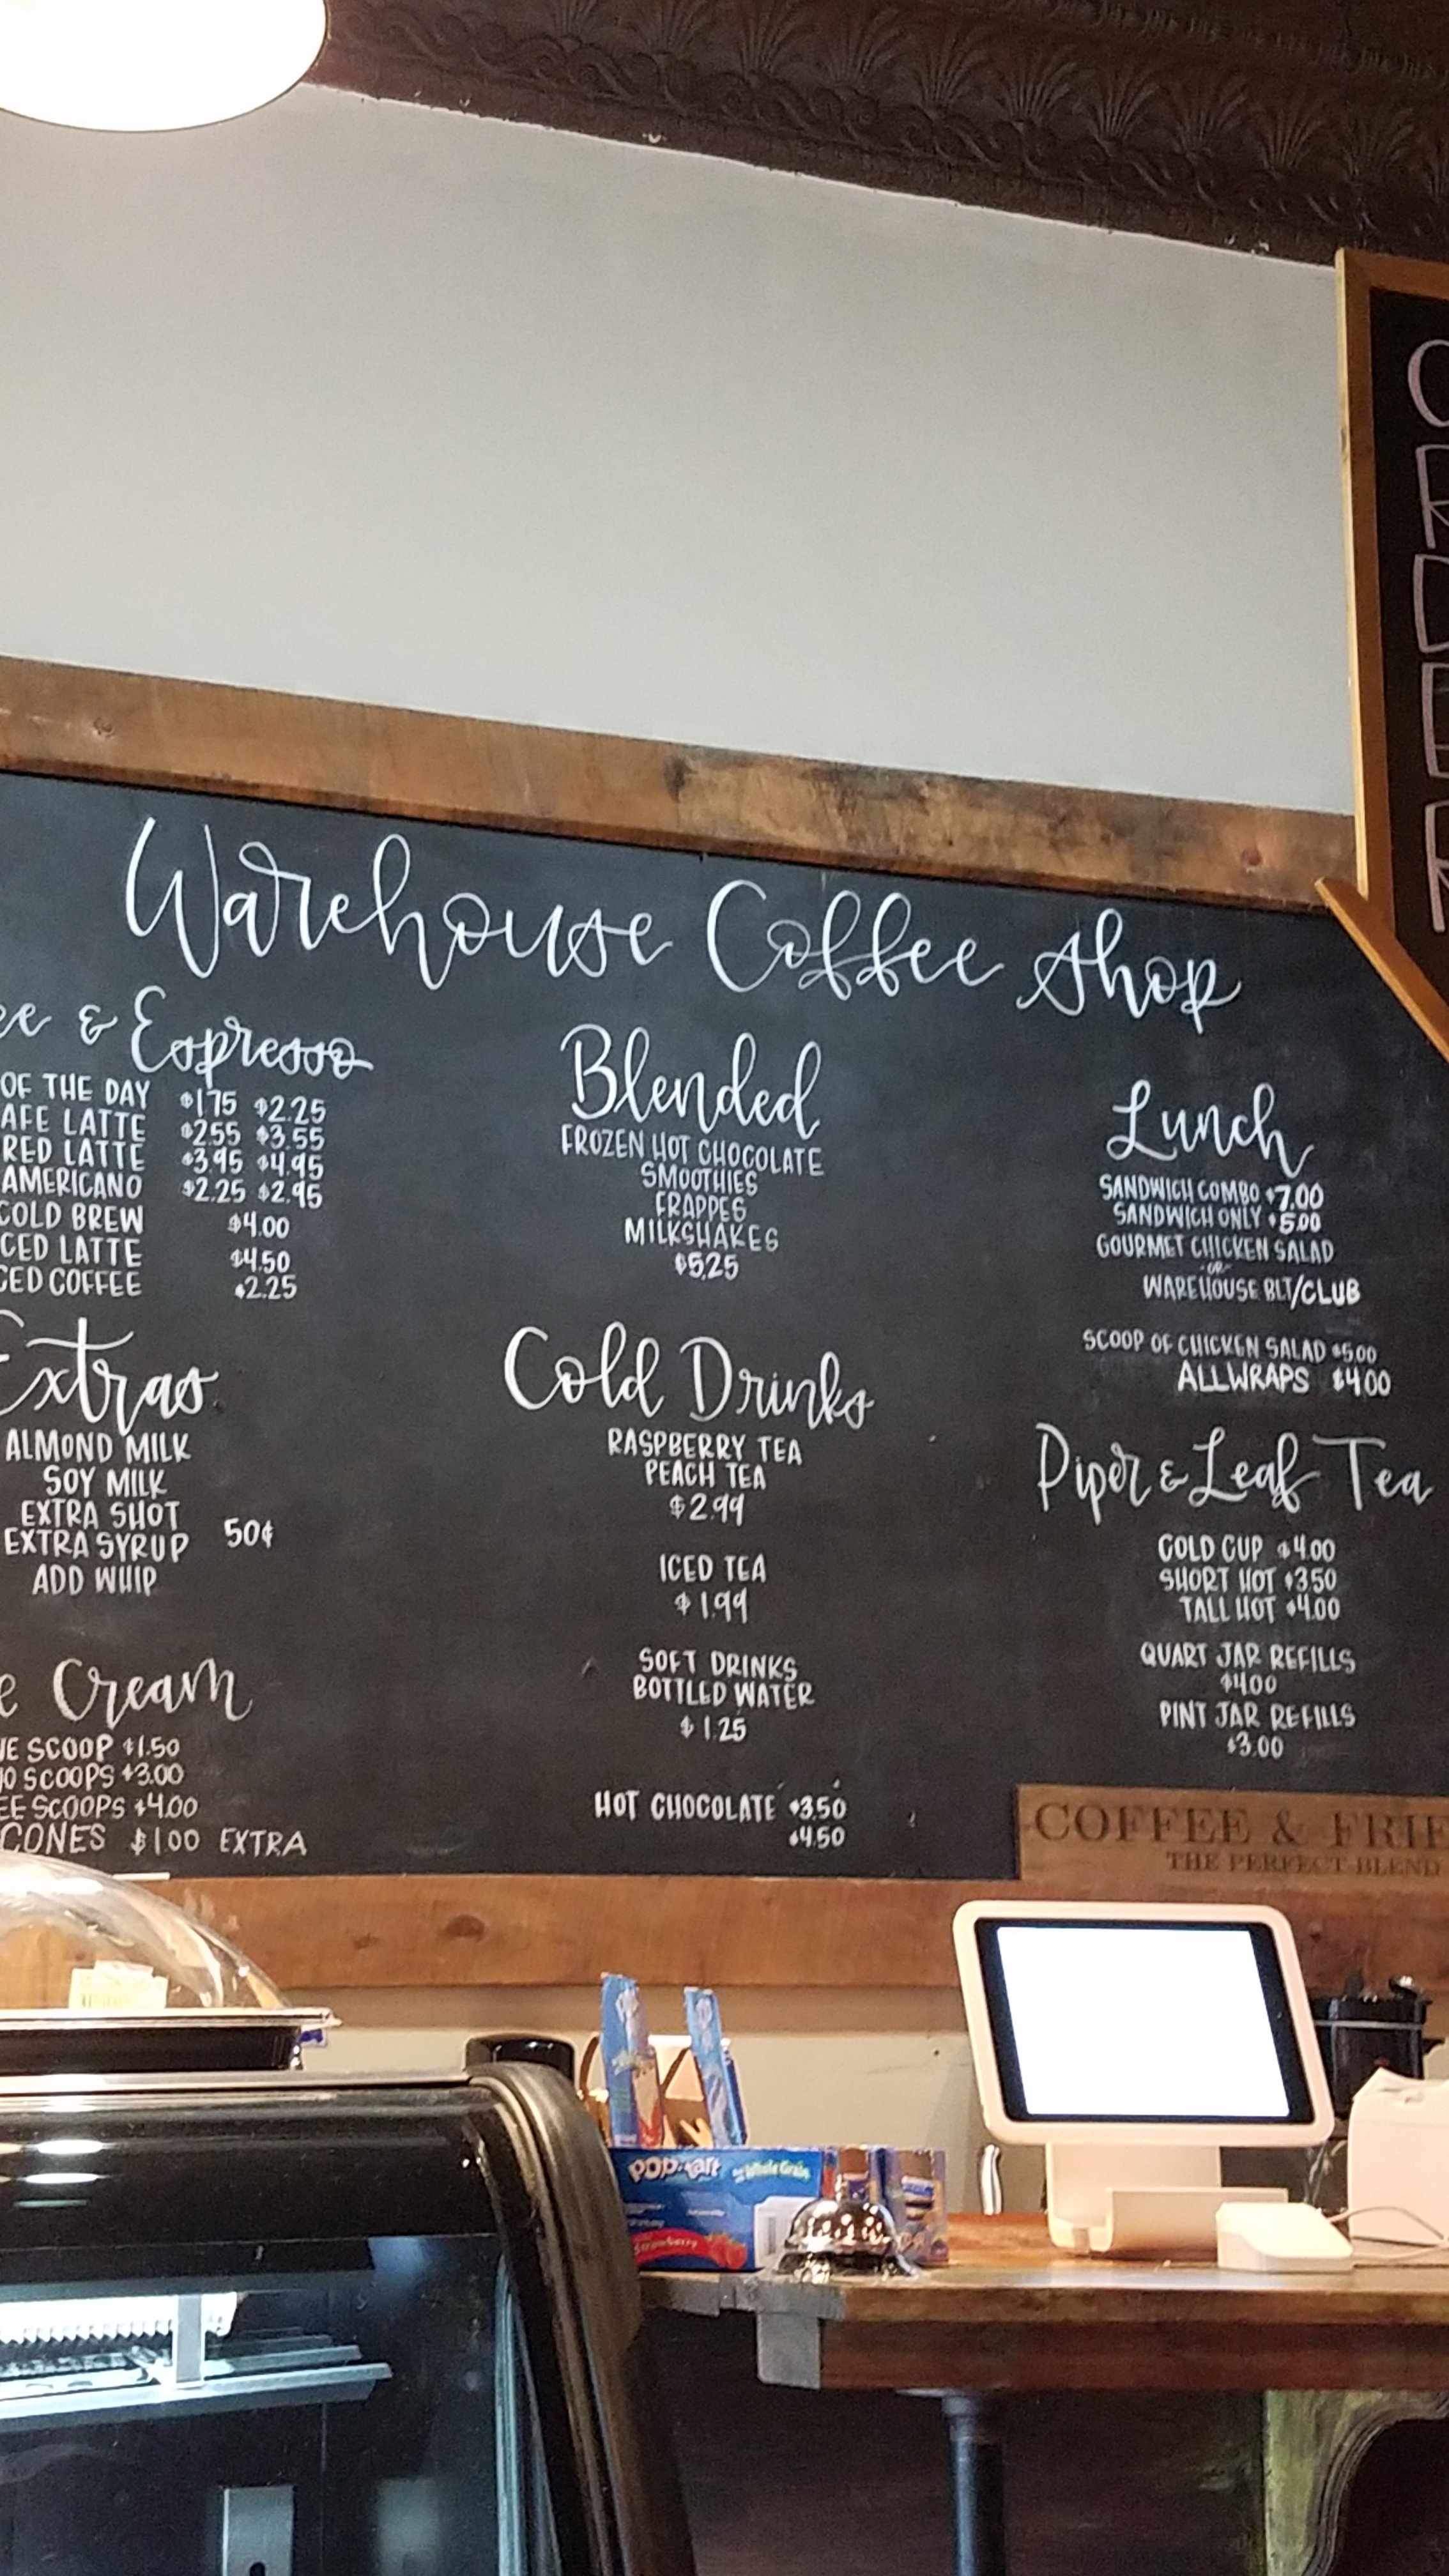 Warehouse Coffee Shop
ee & Espresso
OF THE DAY $1.75 $2.25
AFE LATTE $2.55 $3.55
RED LATTE $3.95 $4.95
AMERICANO $2.25 $2.95
COLD BREW $4.00
CED LATTE $4.50
CED COFFEE $2.25
Extras
ALMOND MILK
SOY MILK
EXTRA SHOT
EXTRA SYRUP 50¢
ADD WHIP
e Cream
NE SCOOP $1.50
WO SCOOPS $3.00
EE SCOOPS $4.00
CONES $1.00 EXTRA
Blended
FROZEN HOT CHOCOLATE
SMOOTHIES
FRAPPES
MILKSHAKES
$5.25
Cold Drinks
RASPBERRY TEA
PEACH TEA
$2.99
ICED TEA
$1.99
SOFT DRINKS
BOTTLED WATER
$1.25
HOT CHOCOLATE $3.50
$4.50
Lunch
SANDWICH COMBO $7.00
SANDWICH ONLY $5.00
GOURMET CHICKEN SALAD
-OR-
WAREHOUSE BLT/CLUB
SCOOP OF CHICKEN SALAD $5.00
ALL WRAPS $4.00
Piper & Leaf Tea
COLD CUP $4.00
SHORT HOT $3.50
TALL HOT $4.00
QUART JAR REFILLS
$4.00
PINT JAR REFILLS
$3.00
ORDER
COFFEE & FRIE
THE PERFECT BLEND
Pop-Tart Whole Grain
Strawberry